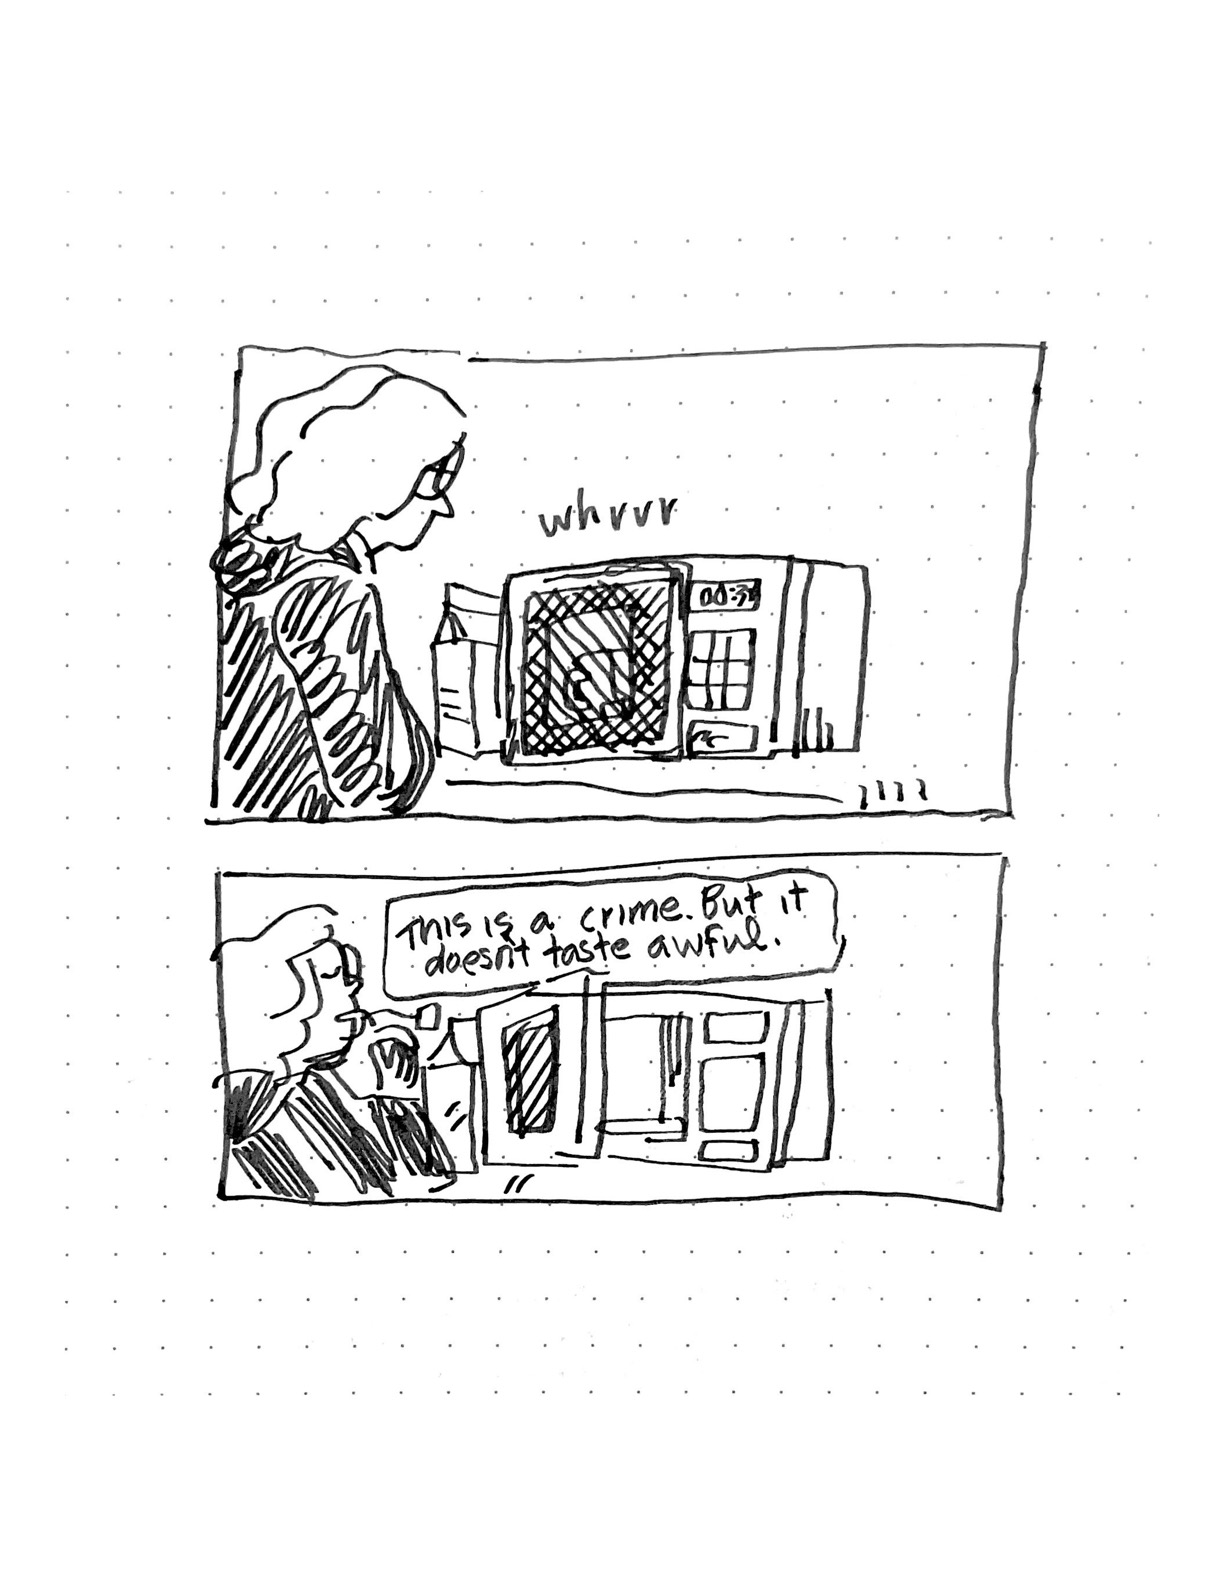 whrrr
This is a crime. But it
doesn't taste awful.